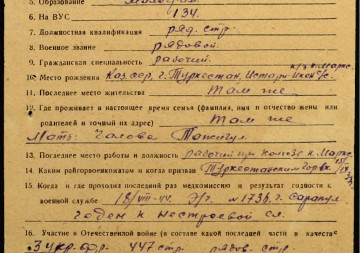 5. Образование
6. На ВУС 134.
7. Должностная квалификация ряд. стр.
8. Военное звание рядовой.
9. Гражданская специальность рабочий
10. Место рождения Каз.сср, г. Туркестан,
11. Последнее место жительства Там же
12. Где проживает в настоящее время семья (фамилия, имя и отчество жены или
родителей и точный их адрес) Там же
Мать:
13. Последнее место работы и должность рабочий при колхозе к. Маркс.
14. Каким райгорвоенкоматом и когда призван Туркестанский
15. Когда и где проходил последний раз медкомиссию и результат годности к
военной службе г. Сарапул
Годен к нестроевой сл.
16. Участие в Отечественной войне (в составе какой последней части в качестве
3 укр. фр. 447 стр. рядов. стр.